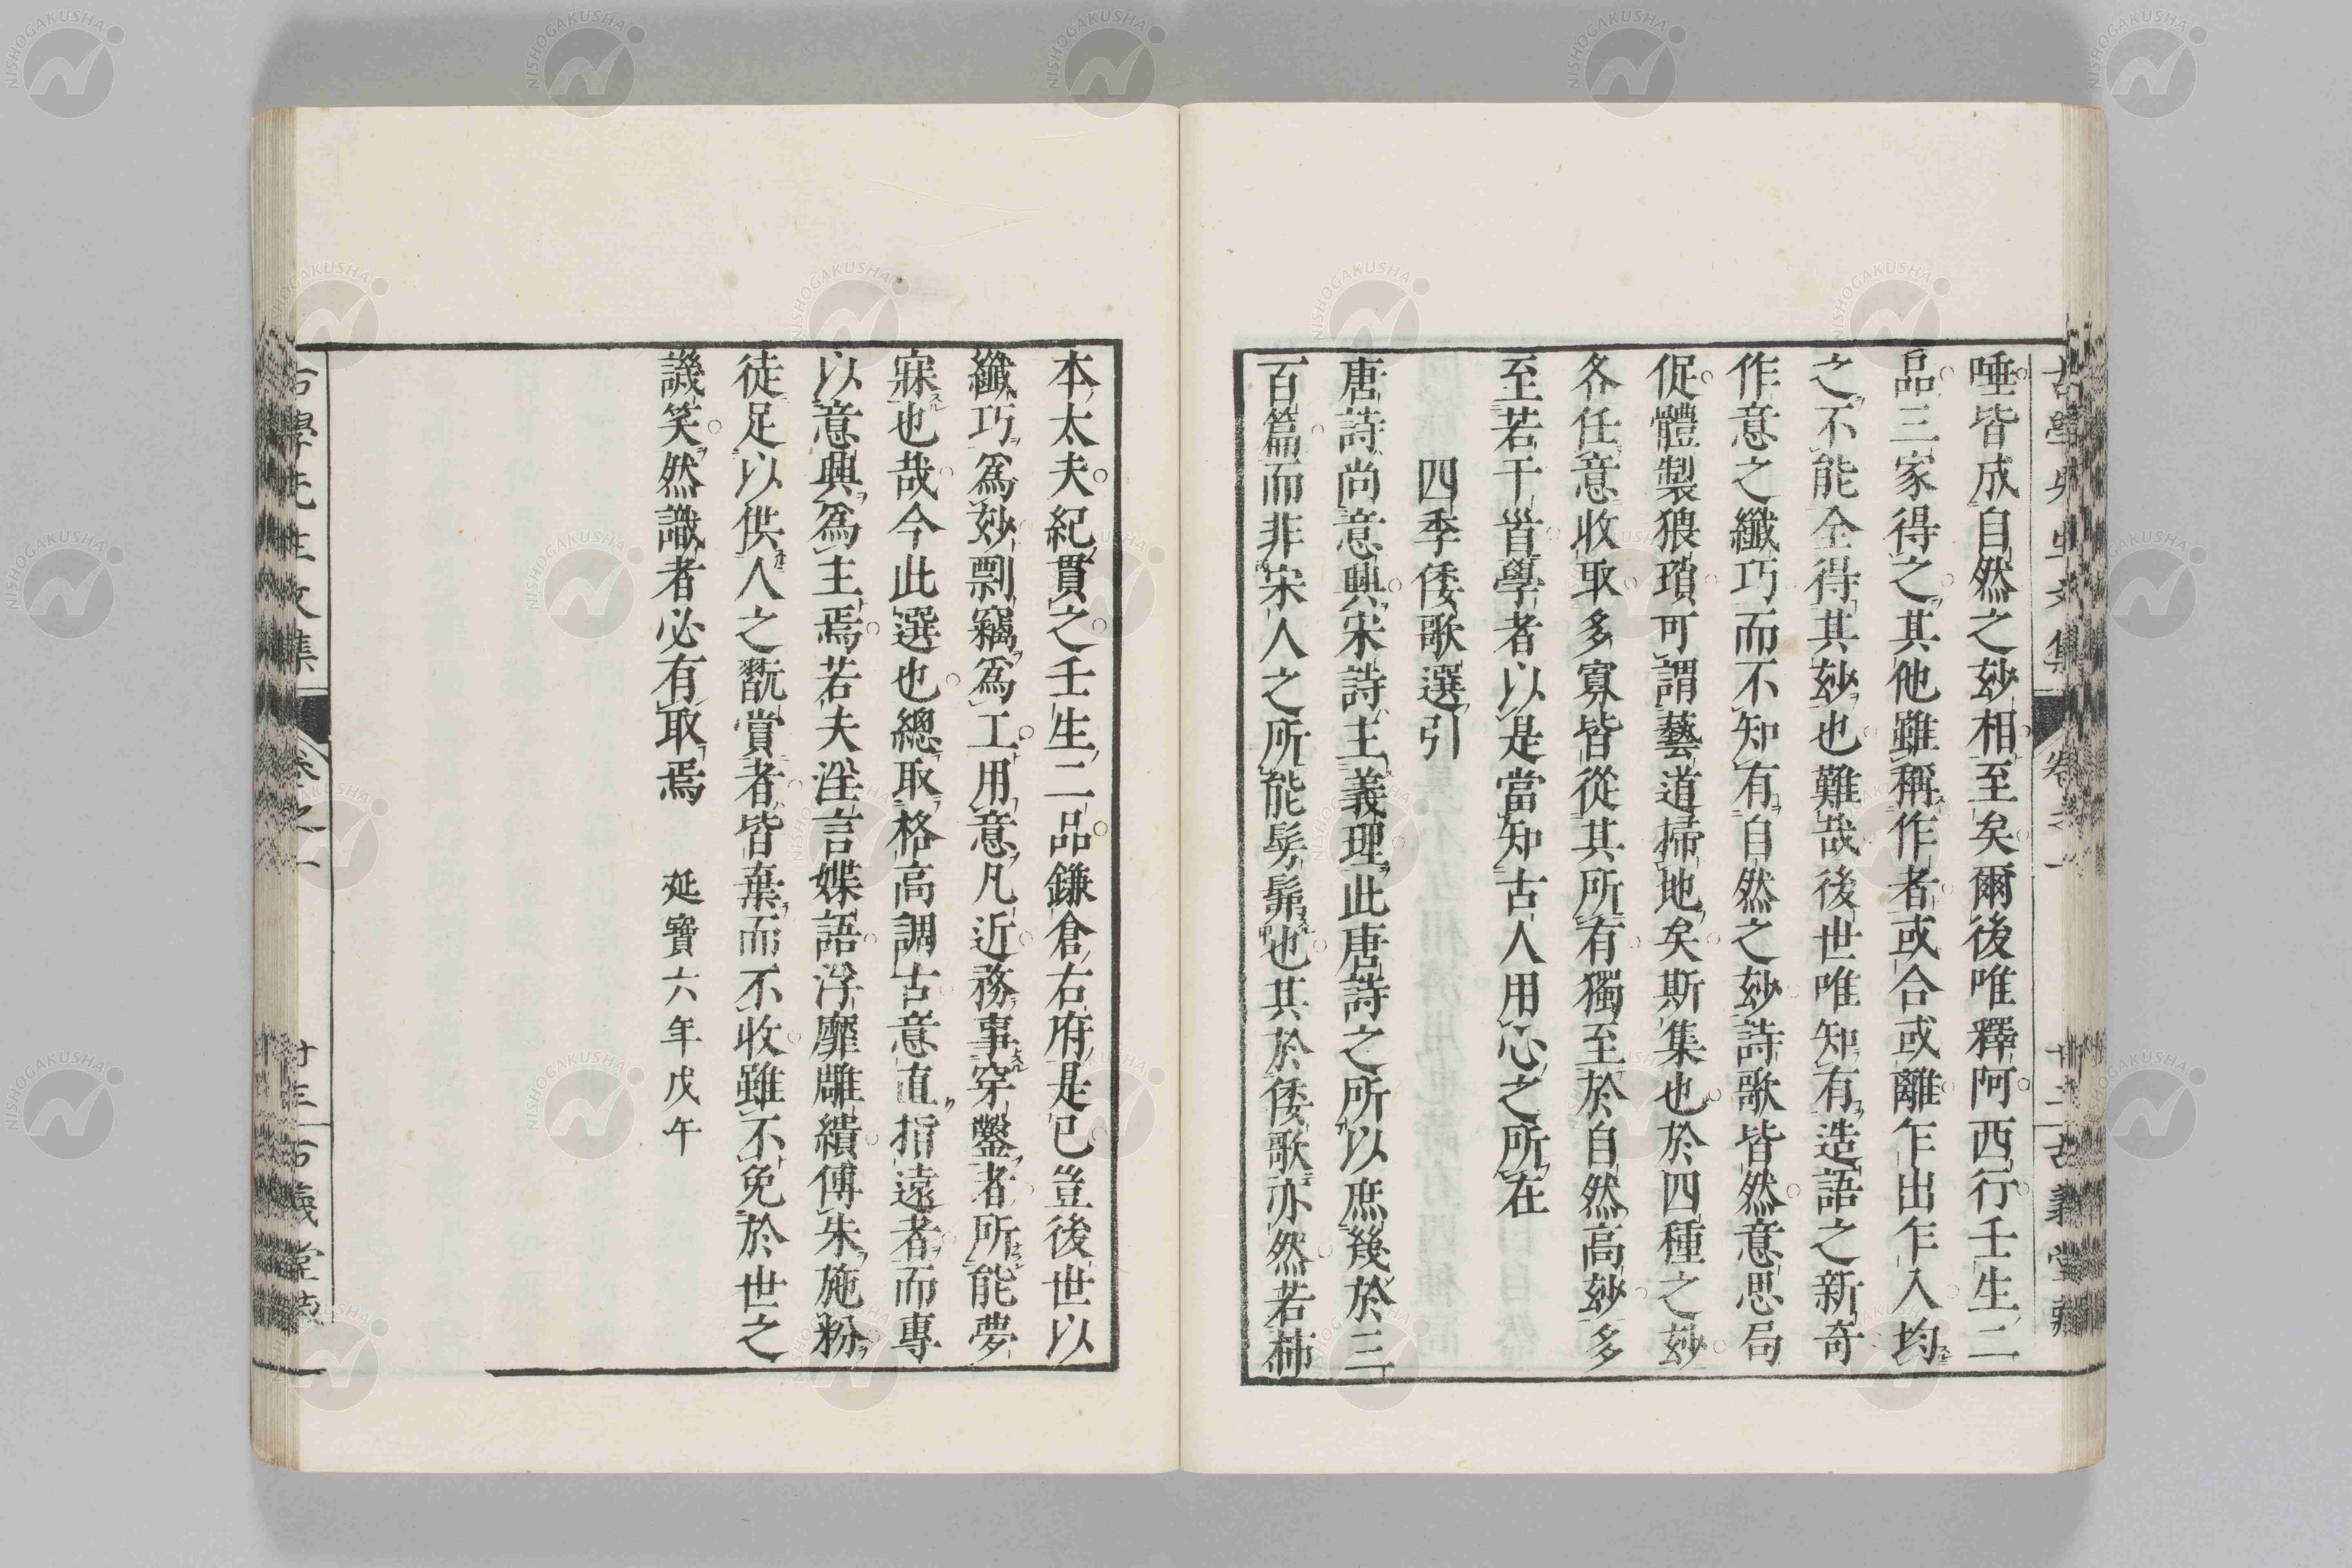 唾皆成自然之玅相至矣爾後唯釋阿西行壬生二
品三家得之其他雖稱作者或合或離乍出乍入均
之不能全得其玅也難哉後世唯知有造語之新奇
作意之纖巧而不知有自然之玅詩歌皆然意思局
促體製猥瑣可謂藝道掃地矣斯集也於四種之玅
各任意收取多寡皆從其所有獨至於自然高玅多
至若干首學者以是當知古人用心之所在
四季倭歌選引
唐詩尚意興宋詩主義理此唐詩之所以庶幾於三
百篇而非宋人之所能髣髴也其於倭歌亦然若柹
本太夫紀貫之壬生二品鎌倉右府是已豈後世以
纖巧爲玅剽竊爲工用意凡近務事穿鑿者所能夢
寐也哉今此選也總取格高調古意直指遠者而專
以意興爲主焉若夫淫言媟語浮靡雕繢傅朱施粉
徒足以供人之翫賞者皆棄而不收雖不免於世之
譏笑然識者必有取焉 延寶六年戊午
古學先生文集 卷之一 古義堂藏
NISHOGAKUSHA